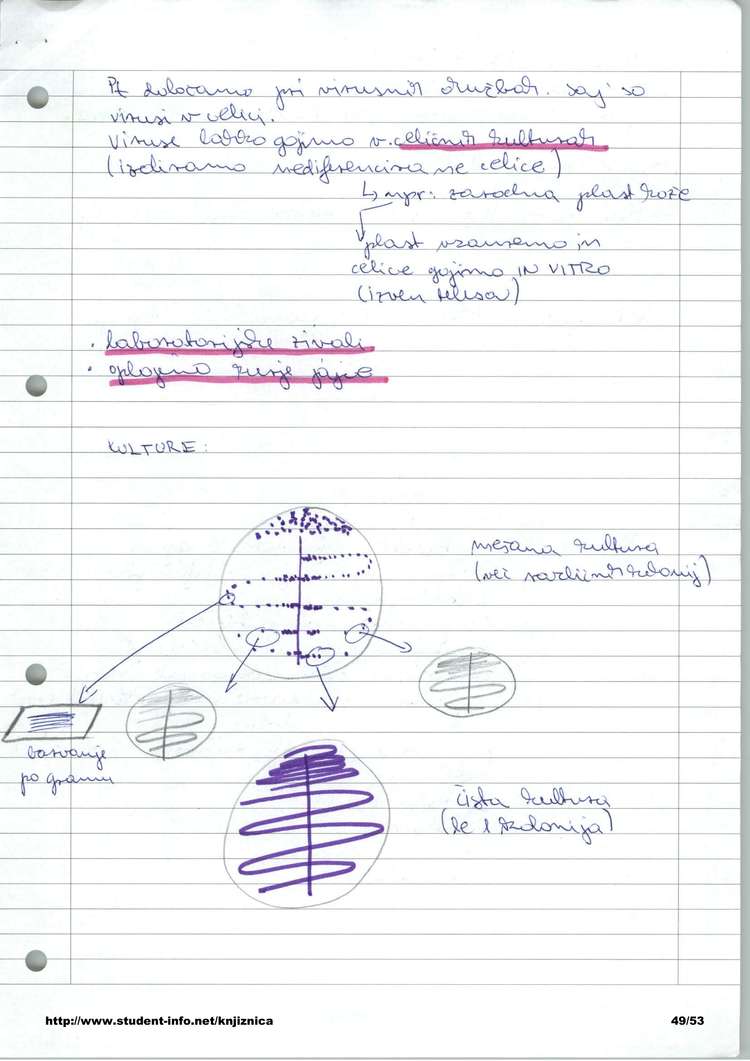 določamo pri virusnih okužbah. saj so
virusi v celici.
Viruse lahko gojimo v celičnih kulturah
(izbiramo nediferencirane celice)
↳ npr: zarodna plast kože
plast vzamemo in
celice gojimo IN VITRO
(izven telesa)
· laboratorijske živali
· oplojeno kurje jajce
KULTURE:
mešana kultura
(več različnih kolonij)
barvanje
po gramu
čista kultura
(le 1 kolonija)
http://www.student-info.net/knjiznica
49/53